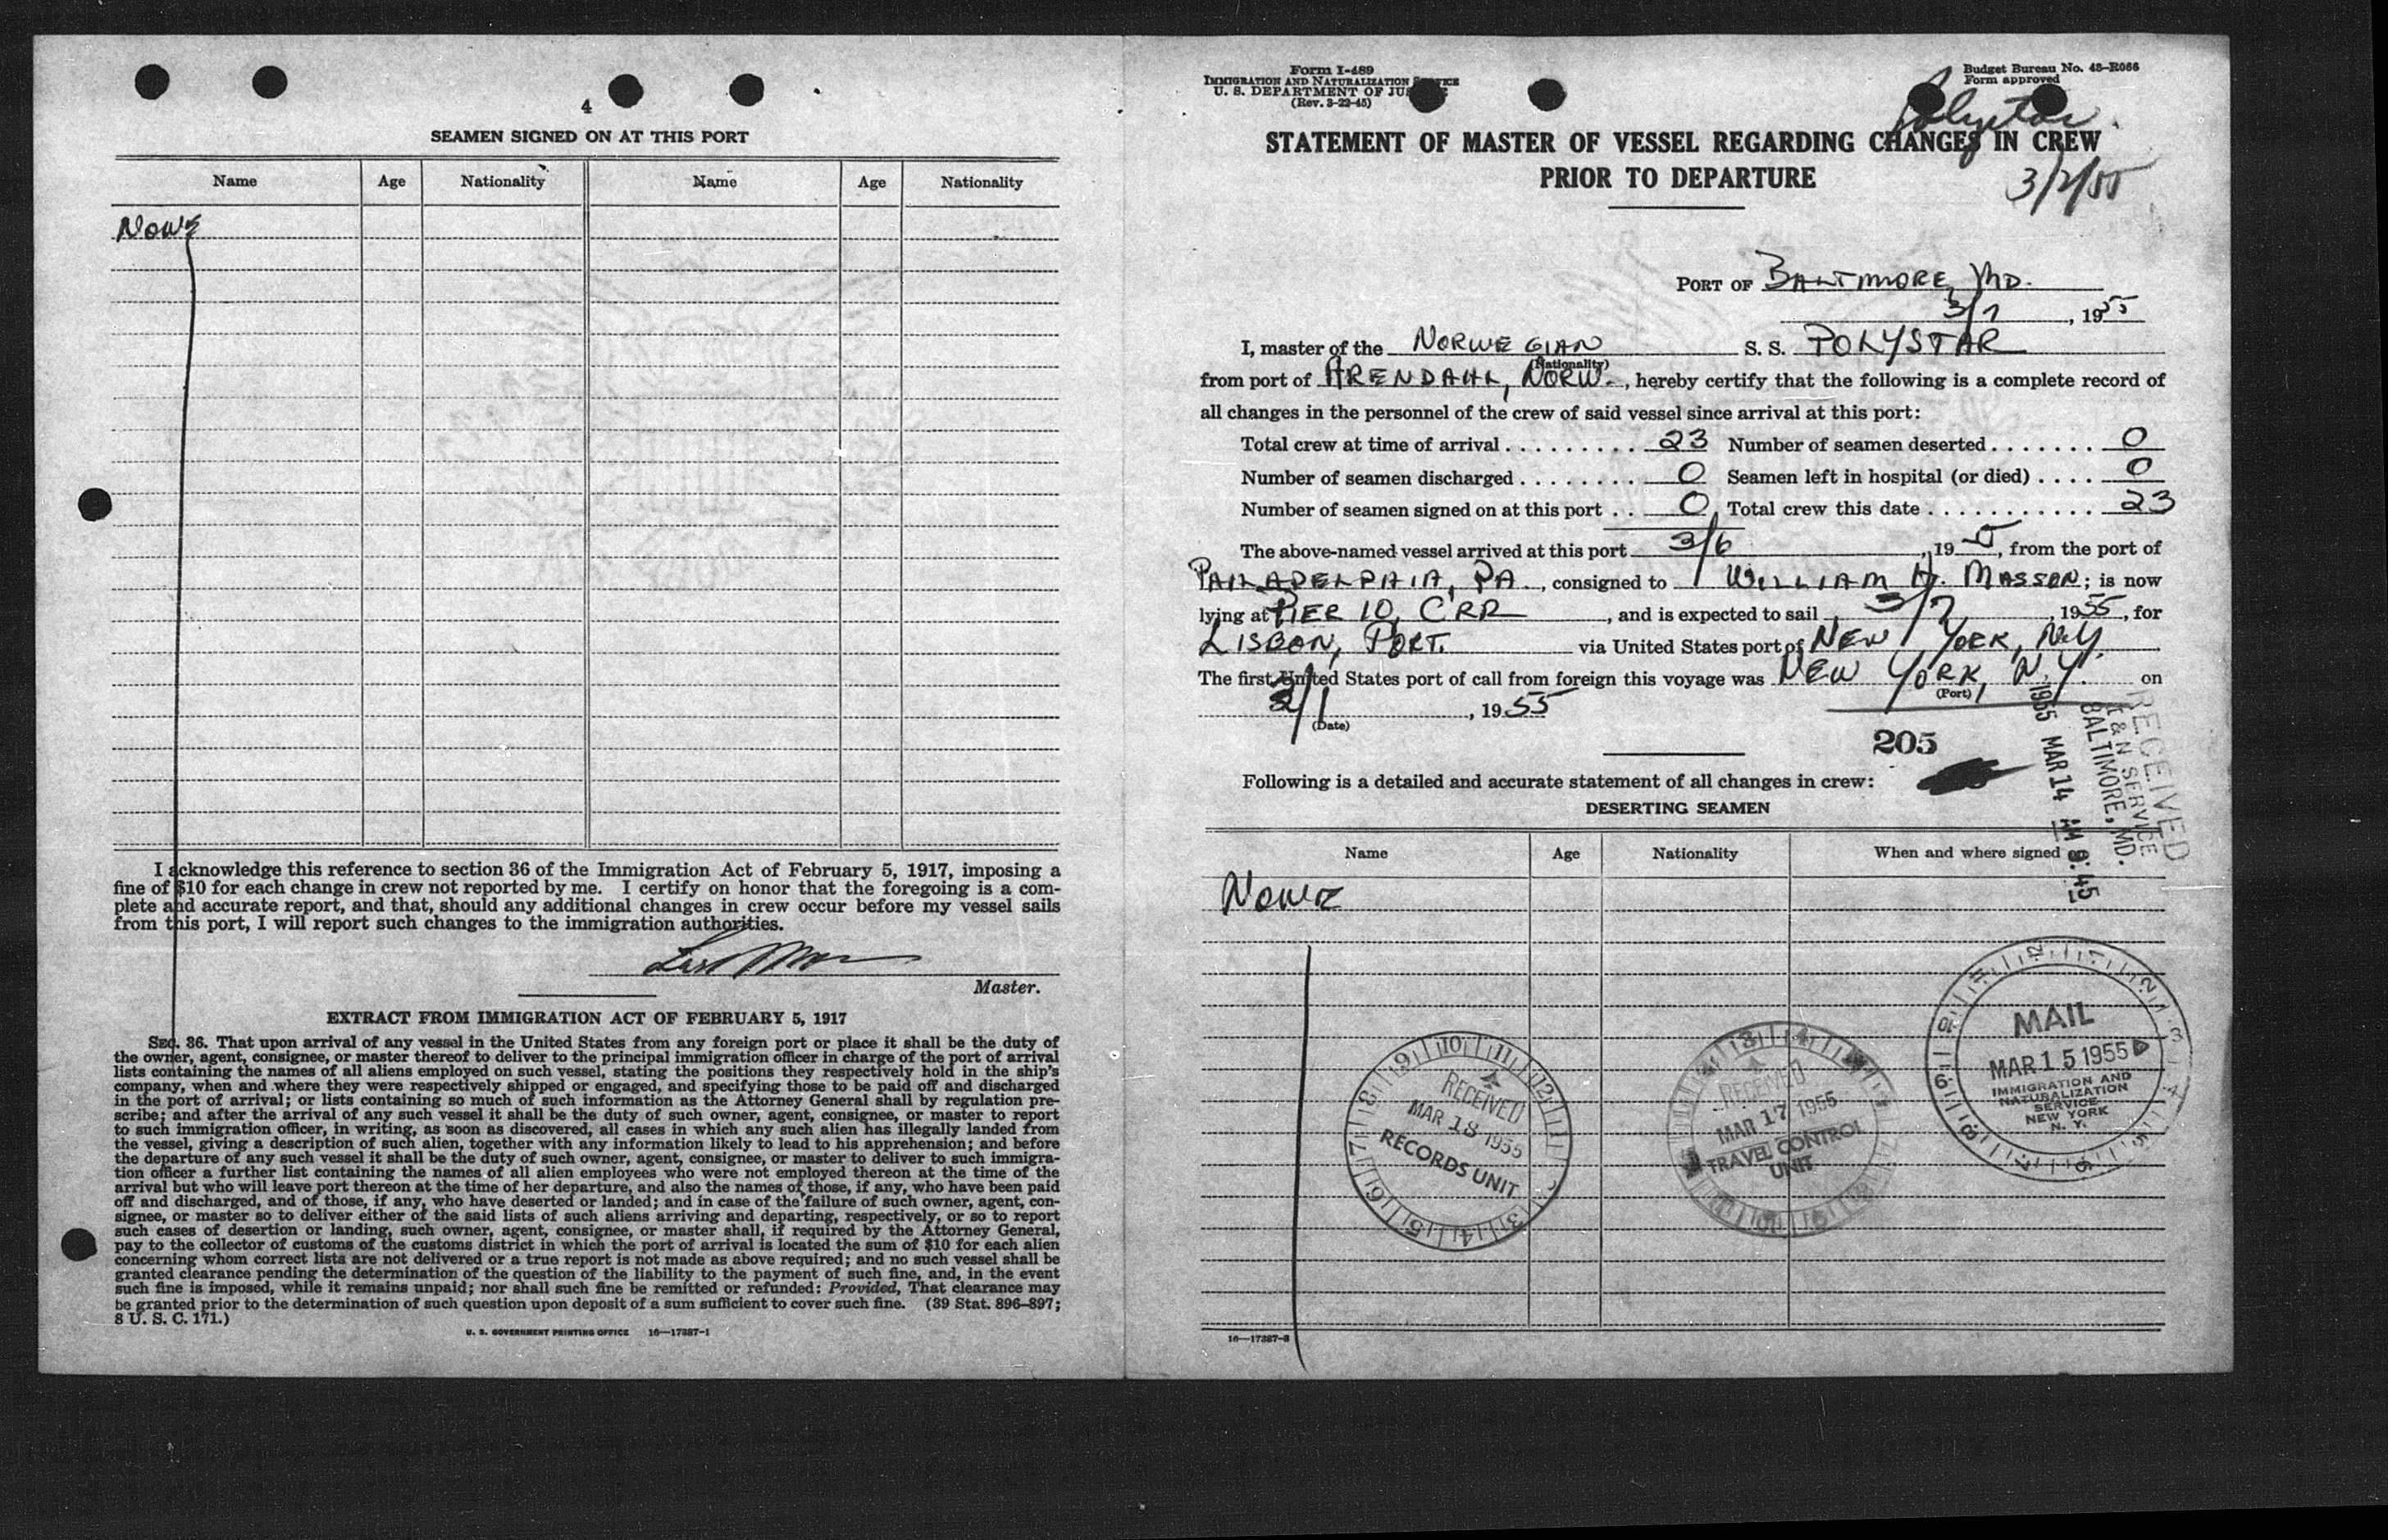 4
SEAMEN SIGNED ON AT THIS PORT
Name Age Nationality Name Age Nationality
None
I acknowledge this reference to section 36 of the Immigration Act of February 5, 1917, imposing a
fine of $10 for each change in crew not reported by me. I certify on honor that the foregoing is a com-
plete and accurate report, and that, should any additional changes in crew occur before my vessel sails
from this port, I will report such changes to the immigration authorities.
Master.
EXTRACT FROM IMMIGRATION ACT OF FEBRUARY 5, 1917
SEC. 36. That upon arrival of any vessel in the United States from any foreign port or place it shall be the duty of
the owner, agent, consignee, or master thereof to deliver to the principal immigration officer in charge of the port of arrival
lists containing the names of all aliens employed on such vessel, stating the positions they respectively hold in the ship's
company, when and where they were respectively shipped or engaged, and specifying those to be paid off and discharged
in the port of arrival; or lists containing so much of such information as the Attorney General shall by regulation pre-
scribe; and after the arrival of any such vessel it shall be the duty of such owner, agent, consignee, or master to report
to such immigration officer, in writing, as soon as discovered, all cases in which any such alien has illegally landed from
the vessel, giving a description of such alien, together with any information likely to lead to his apprehension; and before
the departure of any such vessel it shall be the duty of such owner, agent, consignee, or master to deliver to such immigra-
tion officer a further list containing the names of all alien employees who were not employed thereon at the time of the
arrival but who will leave port thereon at the time of her departure, and also the names of those, if any, who have been paid
off and discharged, and of those, if any, who have deserted or landed; and in case of the failure of such owner, agent, con-
signee, or master so to deliver either of the said lists of such aliens arriving and departing, respectively, or so to report
such cases of desertion or landing, such owner, agent, consignee, or master shall, if required by the Attorney General,
pay to the collector of customs of the customs district in which the port of arrival is located the sum of $10 for each alien
concerning whom correct lists are not delivered or a true report is not made as above required; and no such vessel shall be
granted clearance pending the determination of the question of the liability to the payment of such fine, and, in the event
such fine is imposed, while it remains unpaid; nor shall such fine be remitted or refunded: Provided, That clearance may
be granted prior to the determination of such question upon deposit of a sum sufficient to cover such fine. (39 Stat. 896-897;
8 U. S. C. 171.)
U. S. GOVERNMENT PRINTING OFFICE 16—17387-1
Form I-489
IMMIGRATION AND NATURALIZATION SERVICE
U. S. DEPARTMENT OF JUS
(Rev. 3-22-45)
Budget Bureau No. 43-R066
Form approved
Polystar
3/2/55
STATEMENT OF MASTER OF VESSEL REGARDING CHANGES IN CREW
PRIOR TO DEPARTURE
PORT OF BALTIMORE, MD.
3/7, 1955
I, master of the NORWEGIAN S. S. POLYSTAR
(Nationality)
from port of ARENDAHL, NORW., hereby certify that the following is a complete record of
all changes in the personnel of the crew of said vessel since arrival at this port:
Total crew at time of arrival . . . . . . . . . 23 Number of seamen deserted . . . . . . . 0
Number of seamen discharged . . . . . . . . 0 Seamen left in hospital (or died) . . . . 0
Number of seamen signed on at this port . . 0 Total crew this date . . . . . . . . . . . 23
The above-named vessel arrived at this port 3/6, 195, from the port of
PHILADELPHIA, PA., consigned to WILLIAM H. MASSON; is now
lying at PIER 10, CRR, and is expected to sail 3/7, 1955, for
LISBON, PORT. via United States port of NEW YORK, N.Y.
The first United States port of call from foreign this voyage was NEW YORK, N.Y. on
(Port)
3/1, 1955
(Date)
205
RECEIVED
I & N SERVICE
BALTIMORE, MD.
1955 MAR 14 AM 9:45
Following is a detailed and accurate statement of all changes in crew:
DESERTING SEAMEN
Name Age Nationality When and where signed
None
RECEIVED
MAR 18 1955
RECORDS UNIT
RECEIVED
MAR 17 1955
TRAVEL CONTROL
UNIT
MAIL
MAR 15 1955
IMMIGRATION AND
NATURALIZATION
SERVICE
NEW YORK
N. Y.
16—17387-3